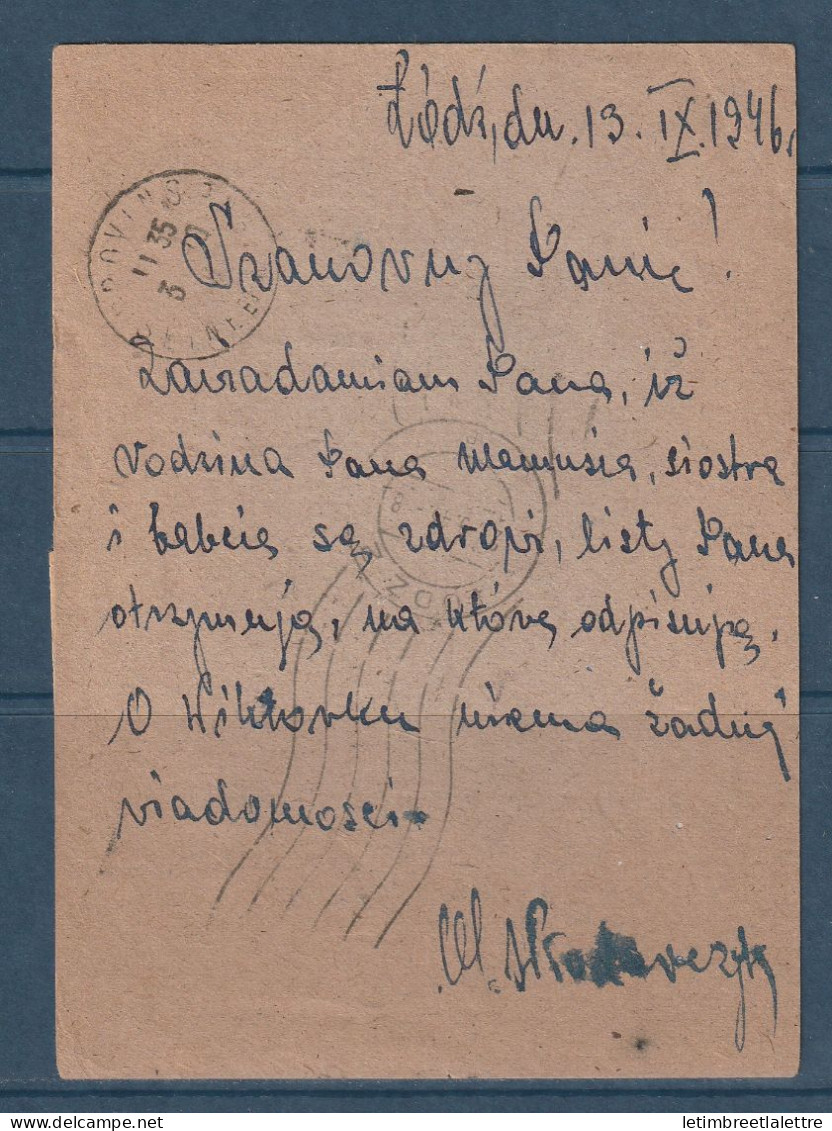 Łódź, dn. 13. IX. 1946 r
Szanowny Panie!
Zawiadamiam Pana, iż
rodzina Pana mamusia, siostra
i babcia są zdrowi, listy Pana
otrzymują, na które odpisują.
O Wiktorku niema żadnej
wiadomości.
Wł. Włodarczyk
11 35
3
ŁÓDŹ
letimbreetlalettre.com